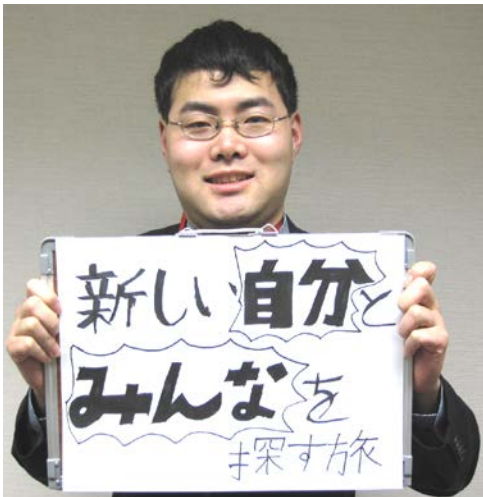 新しい自分と
みんなを
探す旅